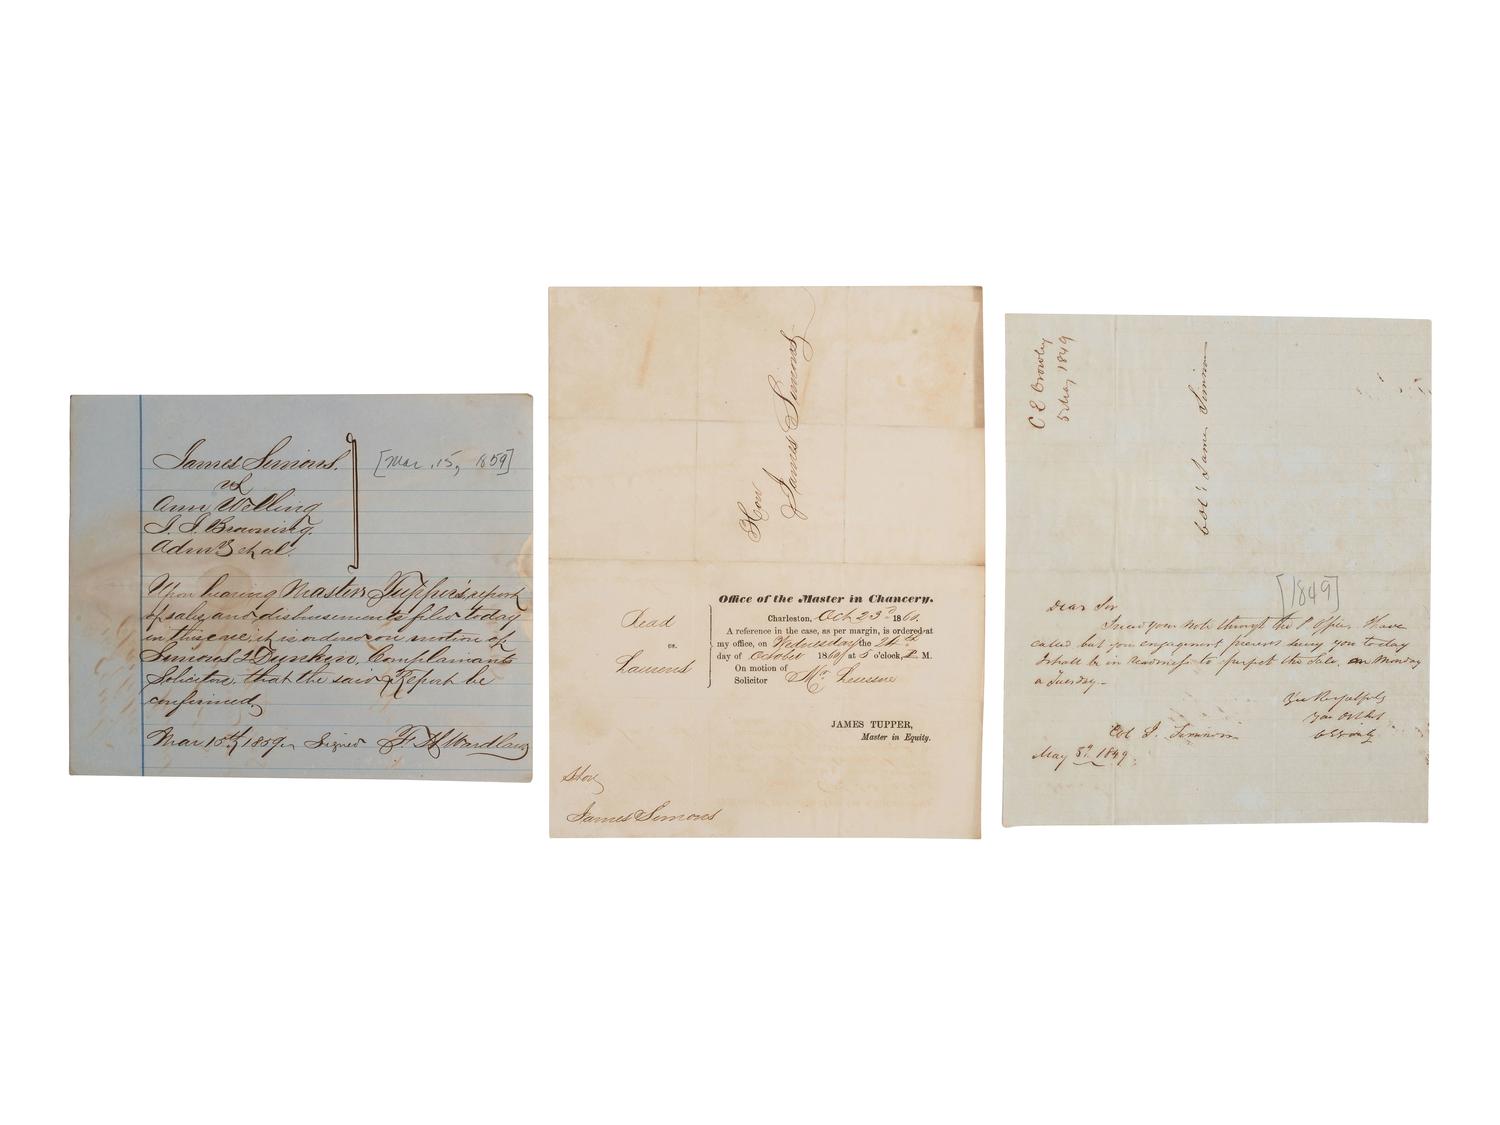 James Simons.
vs
Ann Welling
J. J. Browning.
Adm'r et al.
[Mar. 15, 1859]
Upon hearing Master Tupper's report
of sales and disbursements filed today
in this case, it is ordered on motion of
Simons & Dunkin, Complainants
Solicitors, that the said Report be
confirmed,
Mar 15th, 1859. Signed F. H. Wardlaw
Hon
James Simons
Office of the Master in Chancery.
Charleston, Oct 23d 1860.
A reference in the case, as per margin, is ordered at
my office, on Wednesday the 24th
day of October 1860 at 5 o'clock, P. M.
On motion of
Solicitor Mr. Lesesne
Dead
vs.
Laurens
JAMES TUPPER,
Master in Equity.
James Simons
C E Crowley
5 May 1849
Col. James Simons
[1849]
Dear Sir
I recd your note through the P Office. Have
called but your engagement prevents seeing you today
I shall be in readiness to perfect the Sale, on Monday
or Tuesday
Yrs Respectfully
Your Obt Svt
Col J. Simmons
May 5th 1849